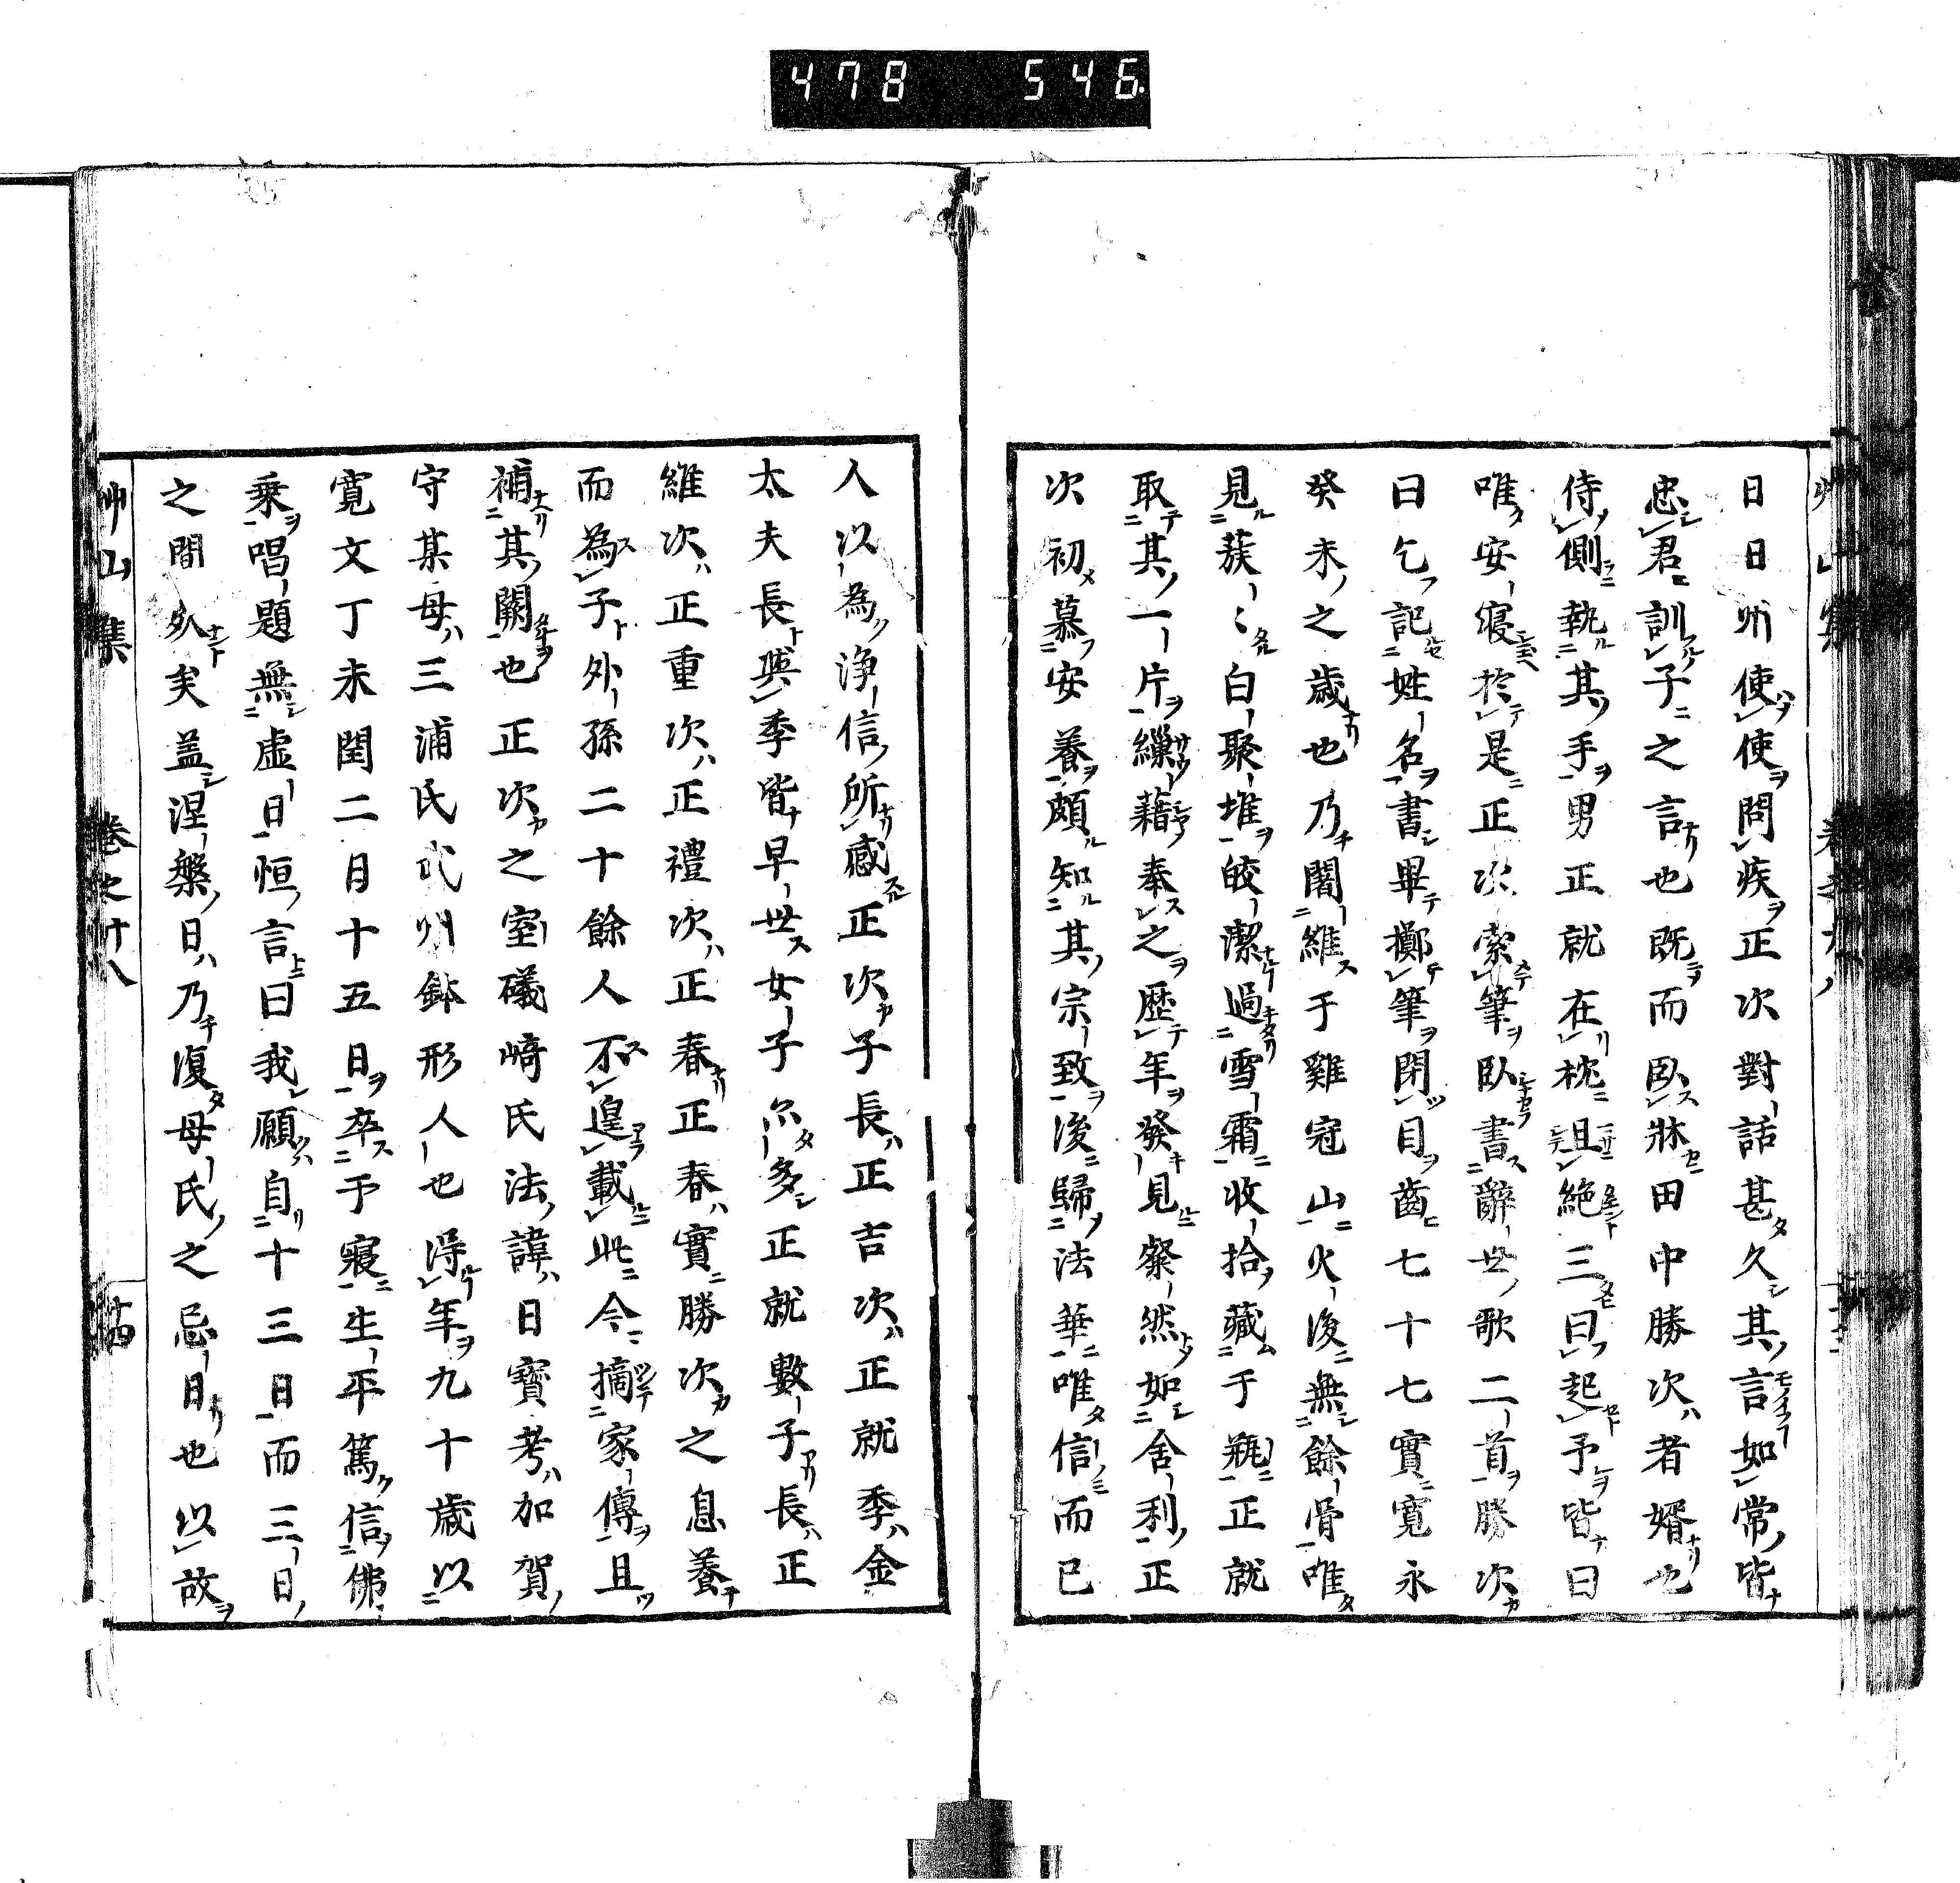 478 546
日日州使使問疾正次對話甚久其言如常皆
忠君訓子之言也既而臥牀田中勝次者婿也
侍側執其手男正就在枕且絶三日起予皆曰
唯安寢於是正次索筆臥書辭世歌二首勝次
曰乞記姓名書畢擲筆閉目齒七十七實寛永
癸未之歳也乃闍維于雞冠山火後無餘骨唯
見蔟〻白聚堆皎潔過雪霜收拾藏于瓶正就
取其一片繅藉奉之歴年發見粲然如舍利正
次初慕安養頗知其宗致後歸法華唯信而已
人以為浄信所感正次子長正吉次正就季金
太夫長與季皆早世女子尓多正就數子長正
維次正重次正禮次正春正春實勝次之息養
而為子外孫二十餘人不遑載此今摘家傳且
補其闕也正次之室礒﨑氏法諱日寳考加賀
守某母三浦氏武州鉢形人也得年九十歳以
寛文丁未閏二月十五日卒于寢生平篤信佛
乗唱題無虚日恒言曰我願自十三日而三日
之間死矣盖涅槃日乃復母氏之忌日也以故
艸山集 卷之十八 十四